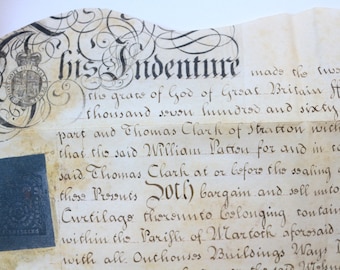 This Indenture made the twe
the grace of God of Great Britain ff
thousand seven hundred and sixty
part and Thomas Clark of Stratton with
that the said William Patton for and in co
said Thomas Clark at or before the sealing a
these Presents Doth bargain and sell unto
Curtilage thereunto belonging contain
within the Parish of Martock aforesaid
with all Outhouses Buildings Ways